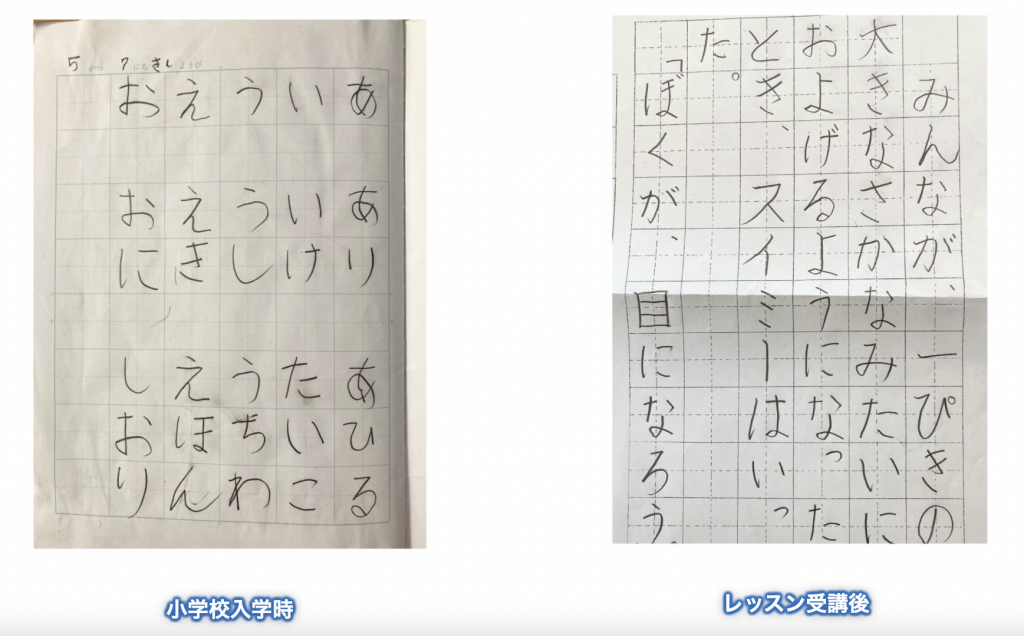 5がつ 7にち ようび
あ あり あひる
い いけ たいこ
う うし うちわ
え えき えほん
お おに しおり
小学校入学時
みんなが、一ぴきの
大きなさかなみたいに
およげるようになった
とき、スイミーはいっ
た。
「ぼくが、目になろう。
レッスン受講後